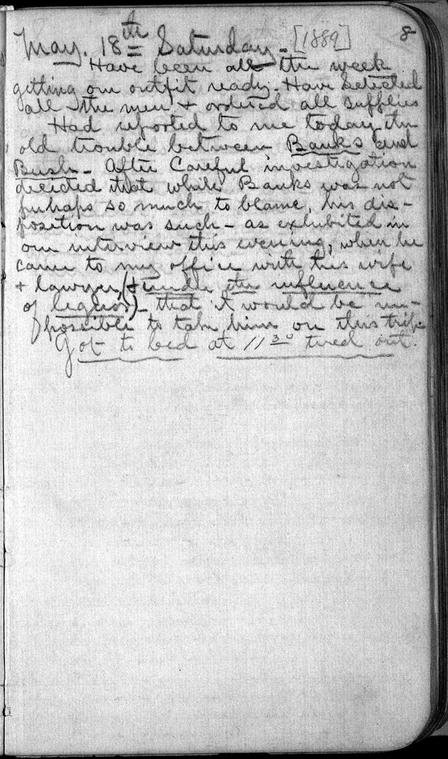 8
May. 18th Saturday - [1889]
Have been all the week
getting our outfit ready. Have selected
all the men & ordered all supplies
Had reported to me today the
old trouble between Banks and
Bush - After Careful investigation
decided that while Banks was not
perhaps so much to blame, his dis-
position was such - as exhibited in
our interview this evening, when he
came to my office with his wife
& lawyer, (& under the influence
of liquor) - that it would be im-
possible to take him on this trip.
Got to bed at 11 30 tired out.